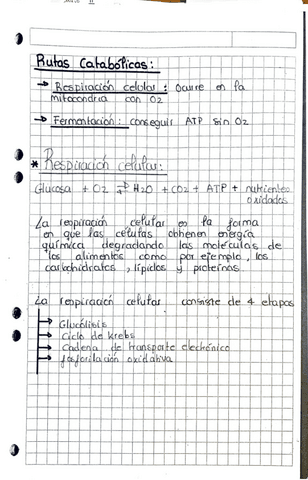 Rutas Catabólicas:
→ Respiración celular: Ocurre en la
mitocondria con O2
→ Fermentación: conseguir ATP sin O2
* Respiración celular:
Glucosa + O2 ⇄ H2O + CO2 + ATP + nutrientes
oxidados
La respiración celular es la forma
en que las células obtienen energía
química degradando las moléculas de
los alimentos como por ejemplo, los
carbohidratos, lípidos y proteínas.
La respiración celular consiste de 4 etapas
→ Glucólisis
→ Ciclo de krebs
→ Cadena de transporte electrónico
→ fosforilación oxidativa